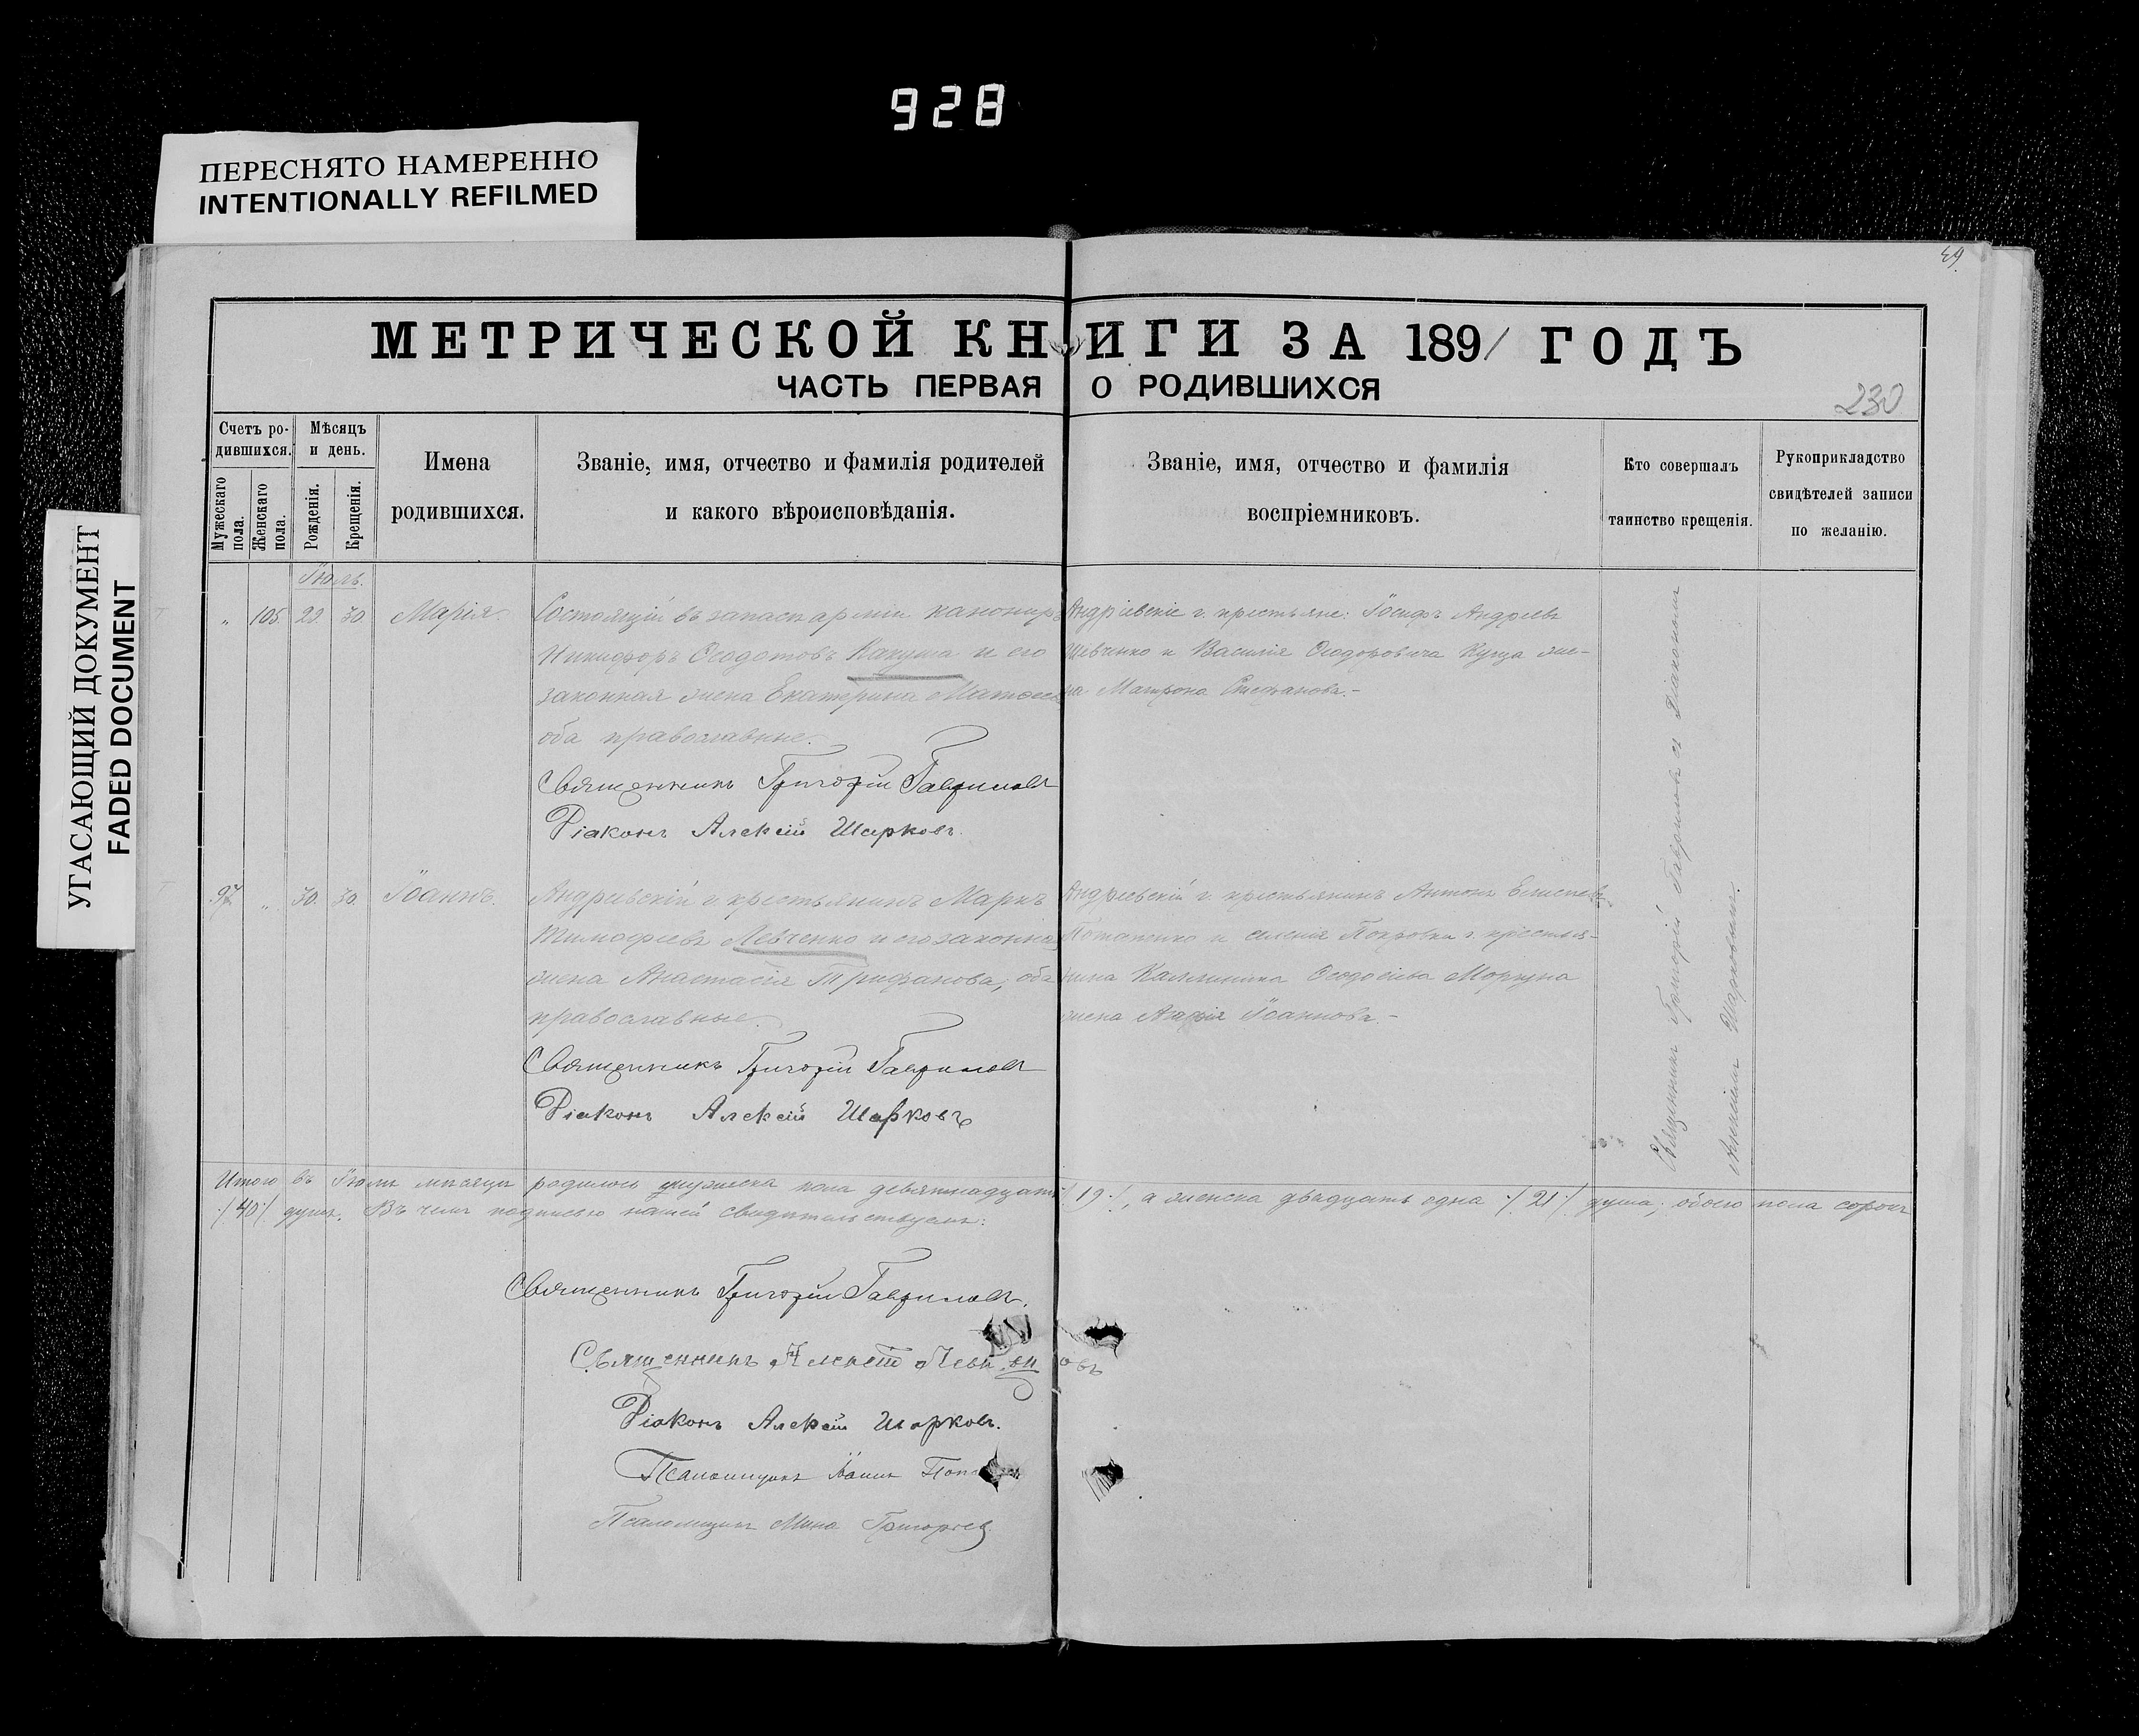 928
ПЕРЕСНЯТО НАМЕРЕННО
INTENTIONALLY REFILMED
УГАСАЮЩИЙ ДОКУМЕНТ
FADED DOCUMENT
МЕТРИЧЕСКОЙ КНИГИ ЗА 1891 ГОДЪ
ЧАСТЬ ПЕРВАЯ О РОДИВШИХСЯ
230
Счетъ ро-
дившихся.
Мужескаго пола.
Женскаго пола.
Мѣсяцъ
и день.
Рожденія.
Крещенія.
Имена
родившихся.
Званіе, имя, отчество и фамилія родителей
и какого вѣроисповѣданія.
Званіе, имя, отчество и фамилія
воспріемниковъ.
Кто совершалъ
таинство крещенія.
Рукоприкладство
свидѣтелей записи
по желанію.
Іюль.
" 105. 29. 30. Марія.
Состоящій въ запасѣ арміи канониръ
Никифоръ Ѳеодотовъ Какуша и его
законная жена Екатерина
оба православные.
Священникъ Григорій Гавриловъ
Діаконъ Алексій Шарковъ.
Андріевскіе г. крестьяне: Іосифъ Андреевъ
Шевченко и Василія Ѳеодоровича Куца же-
на Матрона Стефанова.-
97. " 30. 30. Іоаннъ.
Андреевскій г. крестьянинъ Маркъ
Тимофеевъ Левченко и его законная
жена Анастасія Трифанова, оба
православные.
Священникъ Григорій Гавриловъ
Діаконъ Алексій Шарковъ
Андреевскій г. крестьянинъ Антонъ
Потапенко и селенія Покровки г. крестья-
нина Каллиника Ѳеодосіева Моргуна
жена Марія Іоаннова.-
Священникъ Григорій Гавриловъ съ Діакономъ
Алексіемъ Шарковымъ.
Итого въ Іюлѣ мѣсяцѣ родилось мужеска пола девятнадцать /.19./, а женска двадцать одна /.21./ душа, обоего пола сорокъ
/.40./ душъ. Въ чемъ подписью нашей свидѣтельствуемъ:
Священникъ Григорій Гавриловъ.
Священникъ Алексій
Діаконъ Алексій Шарковъ.
Псаломщикъ Іоаннъ
Псаломщикъ Мина Григорьев